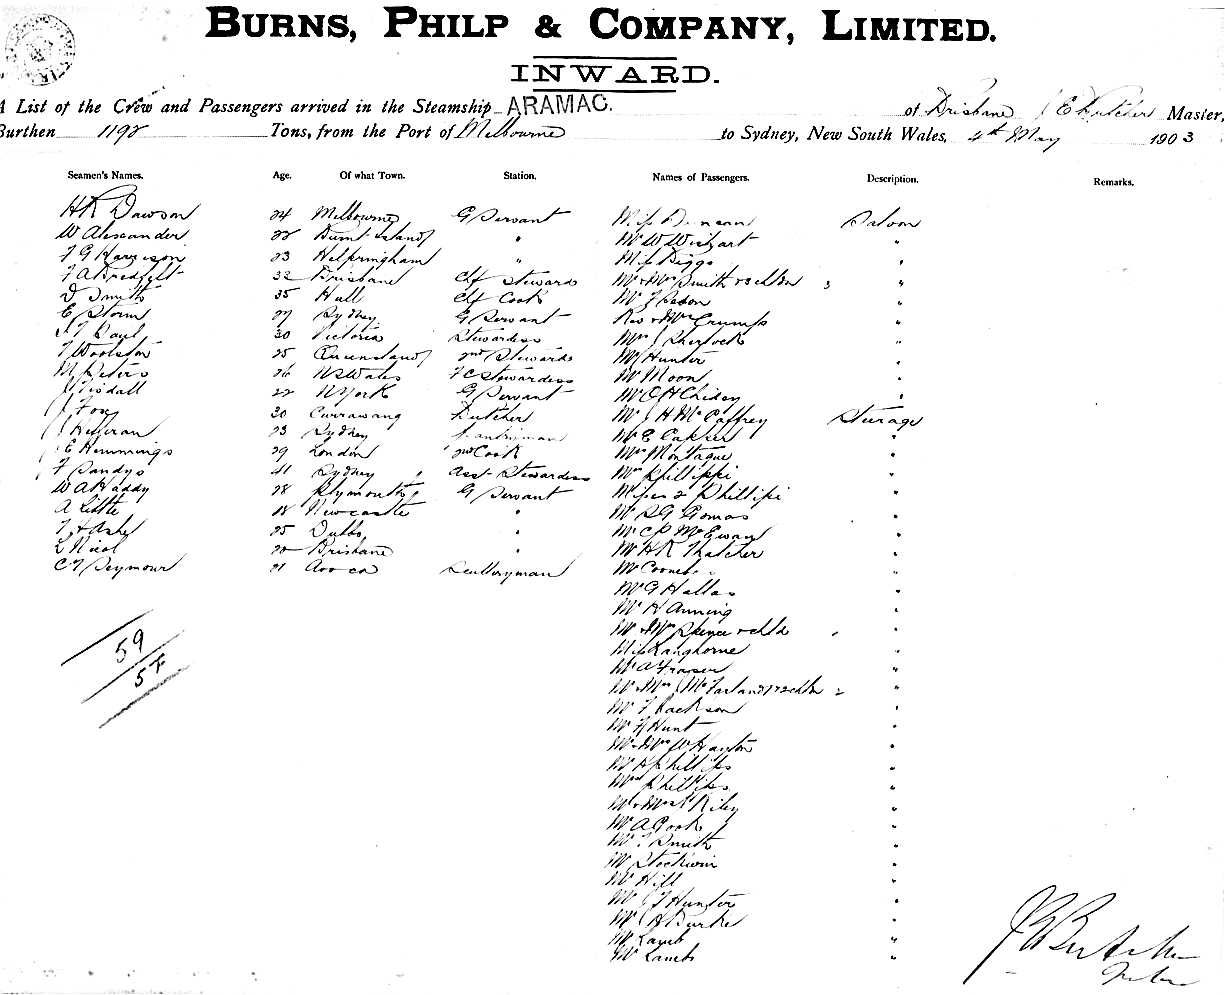 BURNS, PHILP & COMPANY, LIMITED.
INWARD.
A List of the Crew and Passengers arrived in the Steamship ARAMAC. of Brisbane J E Butcher Master,
Burthen 1192 Tons, from the Port of Melbourne to Sydney, New South Wales, 4th May 1903
Seamen's Names. Age. Of what Town. Station. Names of Passengers. Description. Remarks.
H R Dawson 24 Melbourne G Servant Miss Duncan Saloon
W Alexander 22 Burnt Island " Mr W Wishart "
F G Harrison 23 Helpringham " Miss Biggs "
F A 32 Brisbane Chf Steward Mr & Mrs Smith & 3 chldn 3 "
D Smith 35 Hull Chf Cook Mr J "
E Storm 27 Sydney G Servant Rev & Mrs Crumps "
Paul 30 Victoria Stewardess Mrs J Sherlock "
F Woolston 25 Queensland 2nd Steward Mr Hunter "
M Peters 26 N S Wales F C Stewardess Mr Moon "
J Tisdall 22 N York G Servant Mr C H Chidey "
J Fox 30 Currawang Butcher Mr J H McCaffrey Steerage
J 23 Sydney Mr E Capser "
J E Hemmings 29 London 2nd Cook Mrs Montague "
F Sandys 41 Sydney Asst Stewardess Mrs Phillippi "
W A Haddy 28 Plymouth G Servant Misses 2 Phillipi "
A Little 18 Newcastle " Mr S G Gomas "
25 Dubbo " Mr C P McEwan "
L Nicol 20 Brisbane " Mr H R Thatcher "
C F Seymour 21 Sculleryman Mr Coombs "
Mr G Hallas "
Mr H Anning "
Mr & Mrs Spence & chld "
Miss Langhorne "
Mr A Fraser "
Mr & Mrs J McFarland & 2 chldn 2 "
Mr F Jackson "
Mr F Hunt "
Mr & Mrs W Hayton "
Mr H Phillips "
Mrs Phillips "
Mr & Mrs Riley "
Mr A Cook "
Mr J Smith "
Mr Stockwin "
Mr Hill "
Mr J F Hunter "
Mr J H Burke "
Mr Lamb "
Mr Lamb "
59
57
J E Butcher